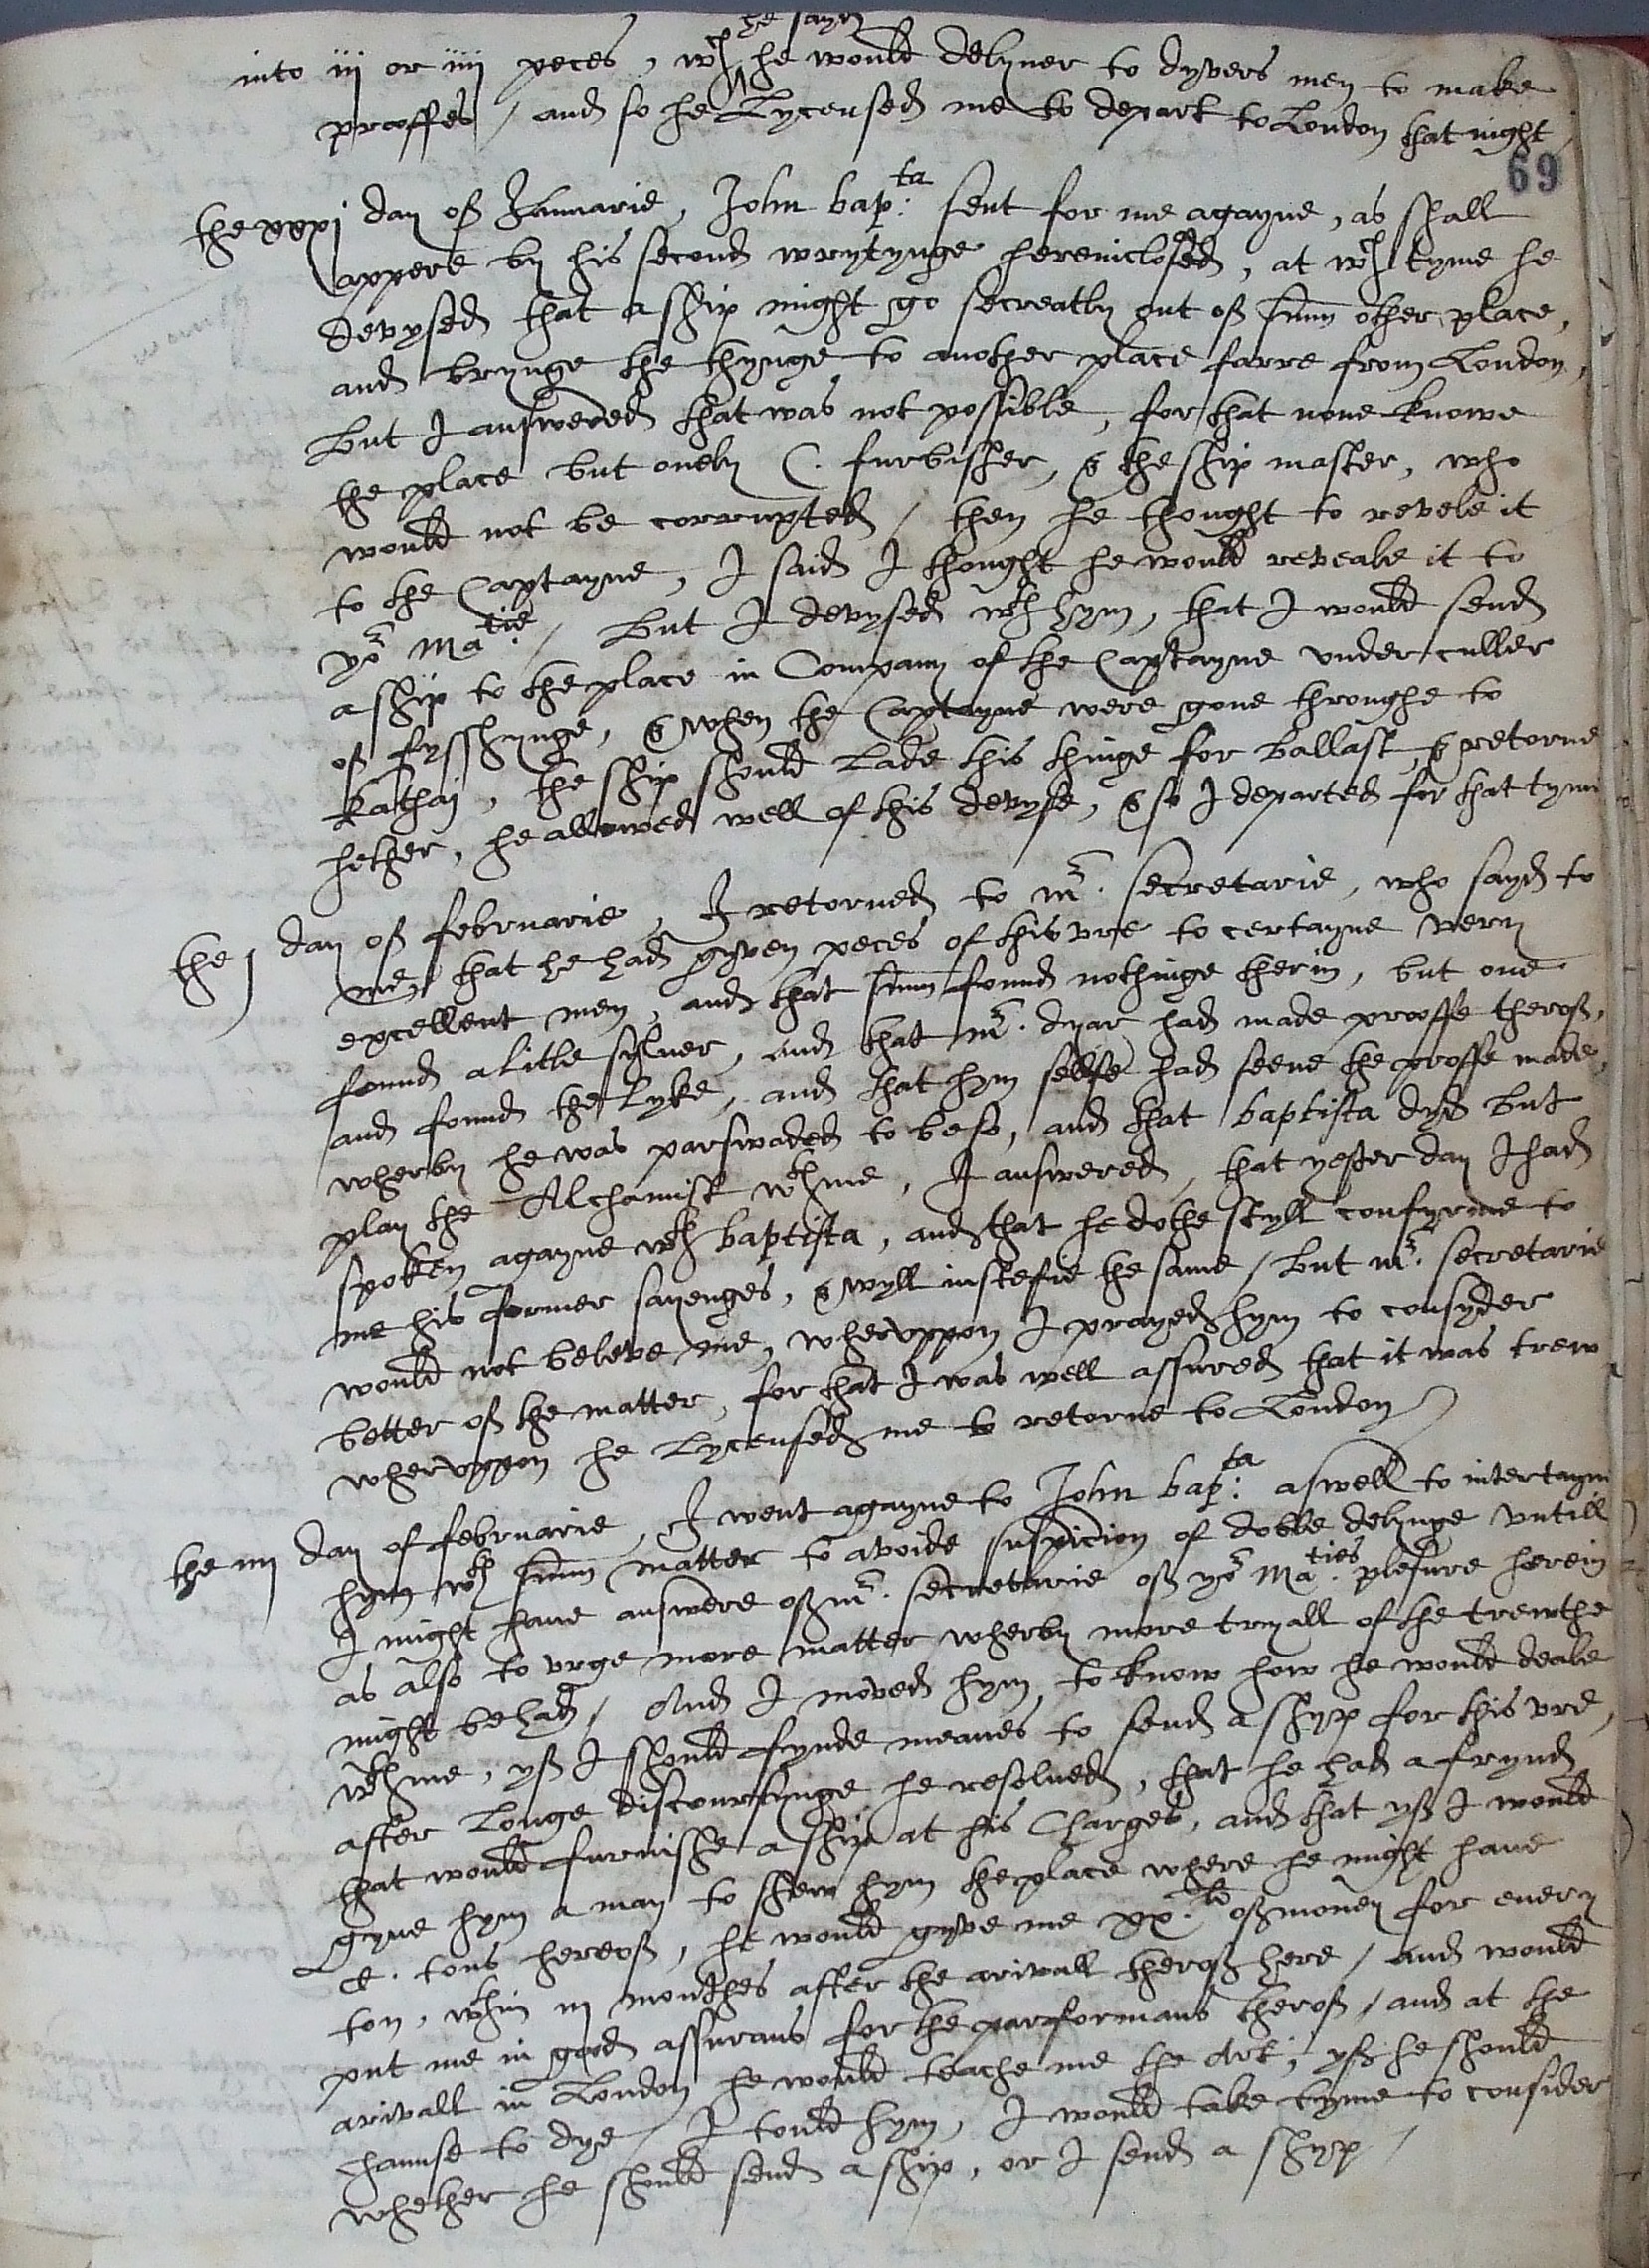 he sayd
into iij or iiij peces, wch he would delyuer to dyvers men to make
prooffes / and so he Lycensed me to depart to London that night
69
the xxxj day off Januarie, John bapta: sent for me agayne, as shall
appere by his second wrytynge hereinclosed, at wch tyme he
devysed that a ship might go secreatly out off sum other place,
and brynge the thynge to another place farre from London,
but I answered that was not possible, for that none knowe
the place but onely C. furbisher, & the ship master, who
would not be corrupted / then he thought to revele it
to the Captayne, I said I thought he would reveale it to
yor Matie: / but I devysed wth hym, that I would send
a ship to the place in Company of the Captayne vnder culler
off fysshynge, & when the Captayne were gone throughe to
Kathaj, the ship should Lade this thinge for ballast, & retorne
hether, he allowed well of this devyse, & so I departed for that tyme
the j day off februarie, I retorned to mr. secretarie, who sayd to
me, that he had gyven peces of this vre to certayne very
excellent men, and that sum found nothinge therin, but one
found a litle sylver, and that mr. dyar had made prooffe theroff,
and found the Lyke, and that hym sellfe had seene the proffe made,
wherby he was parswaded to be so, and that baptista dyd but
play the Alchamist wth me, I answered, that yester day I had
spoken agayne wth baptista, and that he dothe styll confyrme to
me his former sayenges, & wyll iustefie the same / but mr. secretarie
would not beleve me, whervppon I prayed hym to consyder
better off the matter, for that I was well assured that it was trew
whervppon he Lycensed me to retorne to London /
the iiij day of februarie, I went agayne to John bapta: aswell to intertayn
hym wth sum matter to avoide suspicion of doble delynge vntill
I might have answere off mr. secretarie off yor Maties: plesure herein
as also to vrge more matter wherby more tryall of the trewthe
might be had / And I moved hym to know how he would deale
wth me, yff I should fynde meanes to send a shyp for this vre,
after Longe discoursynge he resolved, that he had a frynd
that would furnishe a ship at his Charges, and that yff I would
gyve hym a man to shew hym the place where he might have
C. tons hereoff, he would gyve me xx.li off money for every
ton, wthin iij monthes after the arivall theroff here / and would
put me in good assurans for the parformans theroff / and at the
arivall in London he would teache me the Art, yff he should
chaunse to dye / I tould hym, I would take tyme to consider
whether he should send a ship, or I send a shyp /